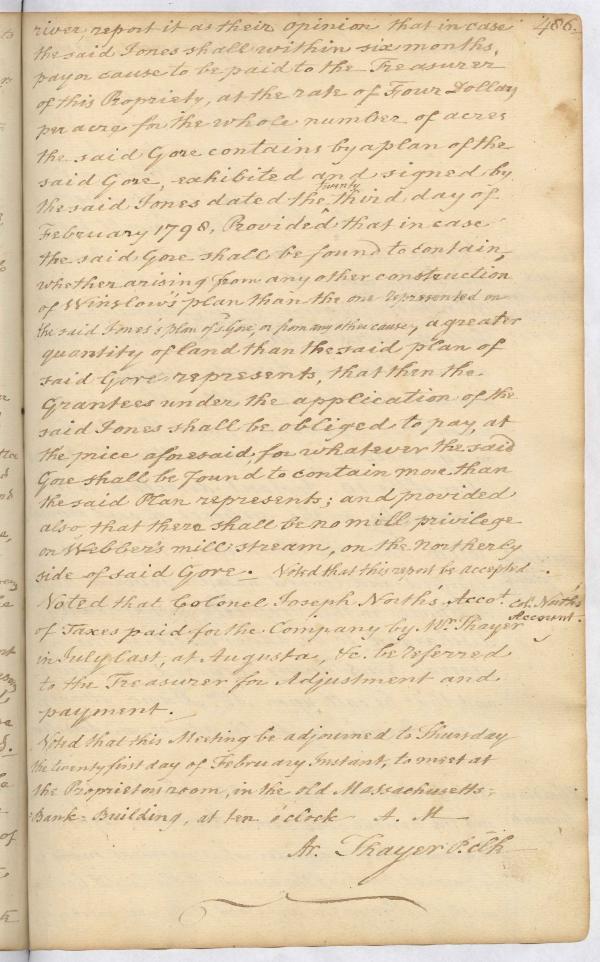 486.
river, report it as their opinion that in case
the said Jones shall within six months,
pay or cause to be paid to the Treasurer
of this Propriety, at the rate of Four Dollars
per acre for the whole number of acres
the said Gore contains by a plan of the
said Gore, exhibited and signed by
the said Jones dated the twenty third day of
February 1798, Provided that in case
the said Gore shall be found to contain,
whether arising from any other construction
of Winslow's plan than the one represented on
the said Jones's plan of sd. Gore, or from any other cause, a greater
quantity of land than the said plan of
said Gore represents, that then the
Grantees under the application of the
said Jones shall be obliged to pay, at
the price aforesaid, for whatever the said
Gore shall be found to contain more than
the said Plan represents; and provided
also, that there shall be no mill privilege
on Webber's mill stream, on the Northerly
side of said Gore. Voted that this report be accepted.
Voted that Colonel Joseph North's Accot.
Col. North's
Account.
of Taxes paid for the Company by Mr. Thayer
in July last, at Augusta, &c. be referred
to the Treasurer for Adjustment and
payment.
Voted that this Meeting be adjourned to Thursday
the twenty first day of February Instant, to meet at
the Proprietors room, in the old Massachusetts-
Bank-Building, at ten o'clock A. M
Ar. Thayer P. Clk